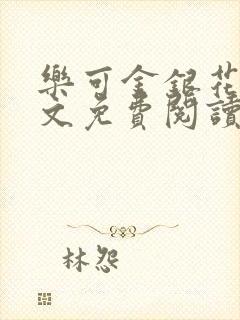 樂可金銀花
文免費閱讀
林怨